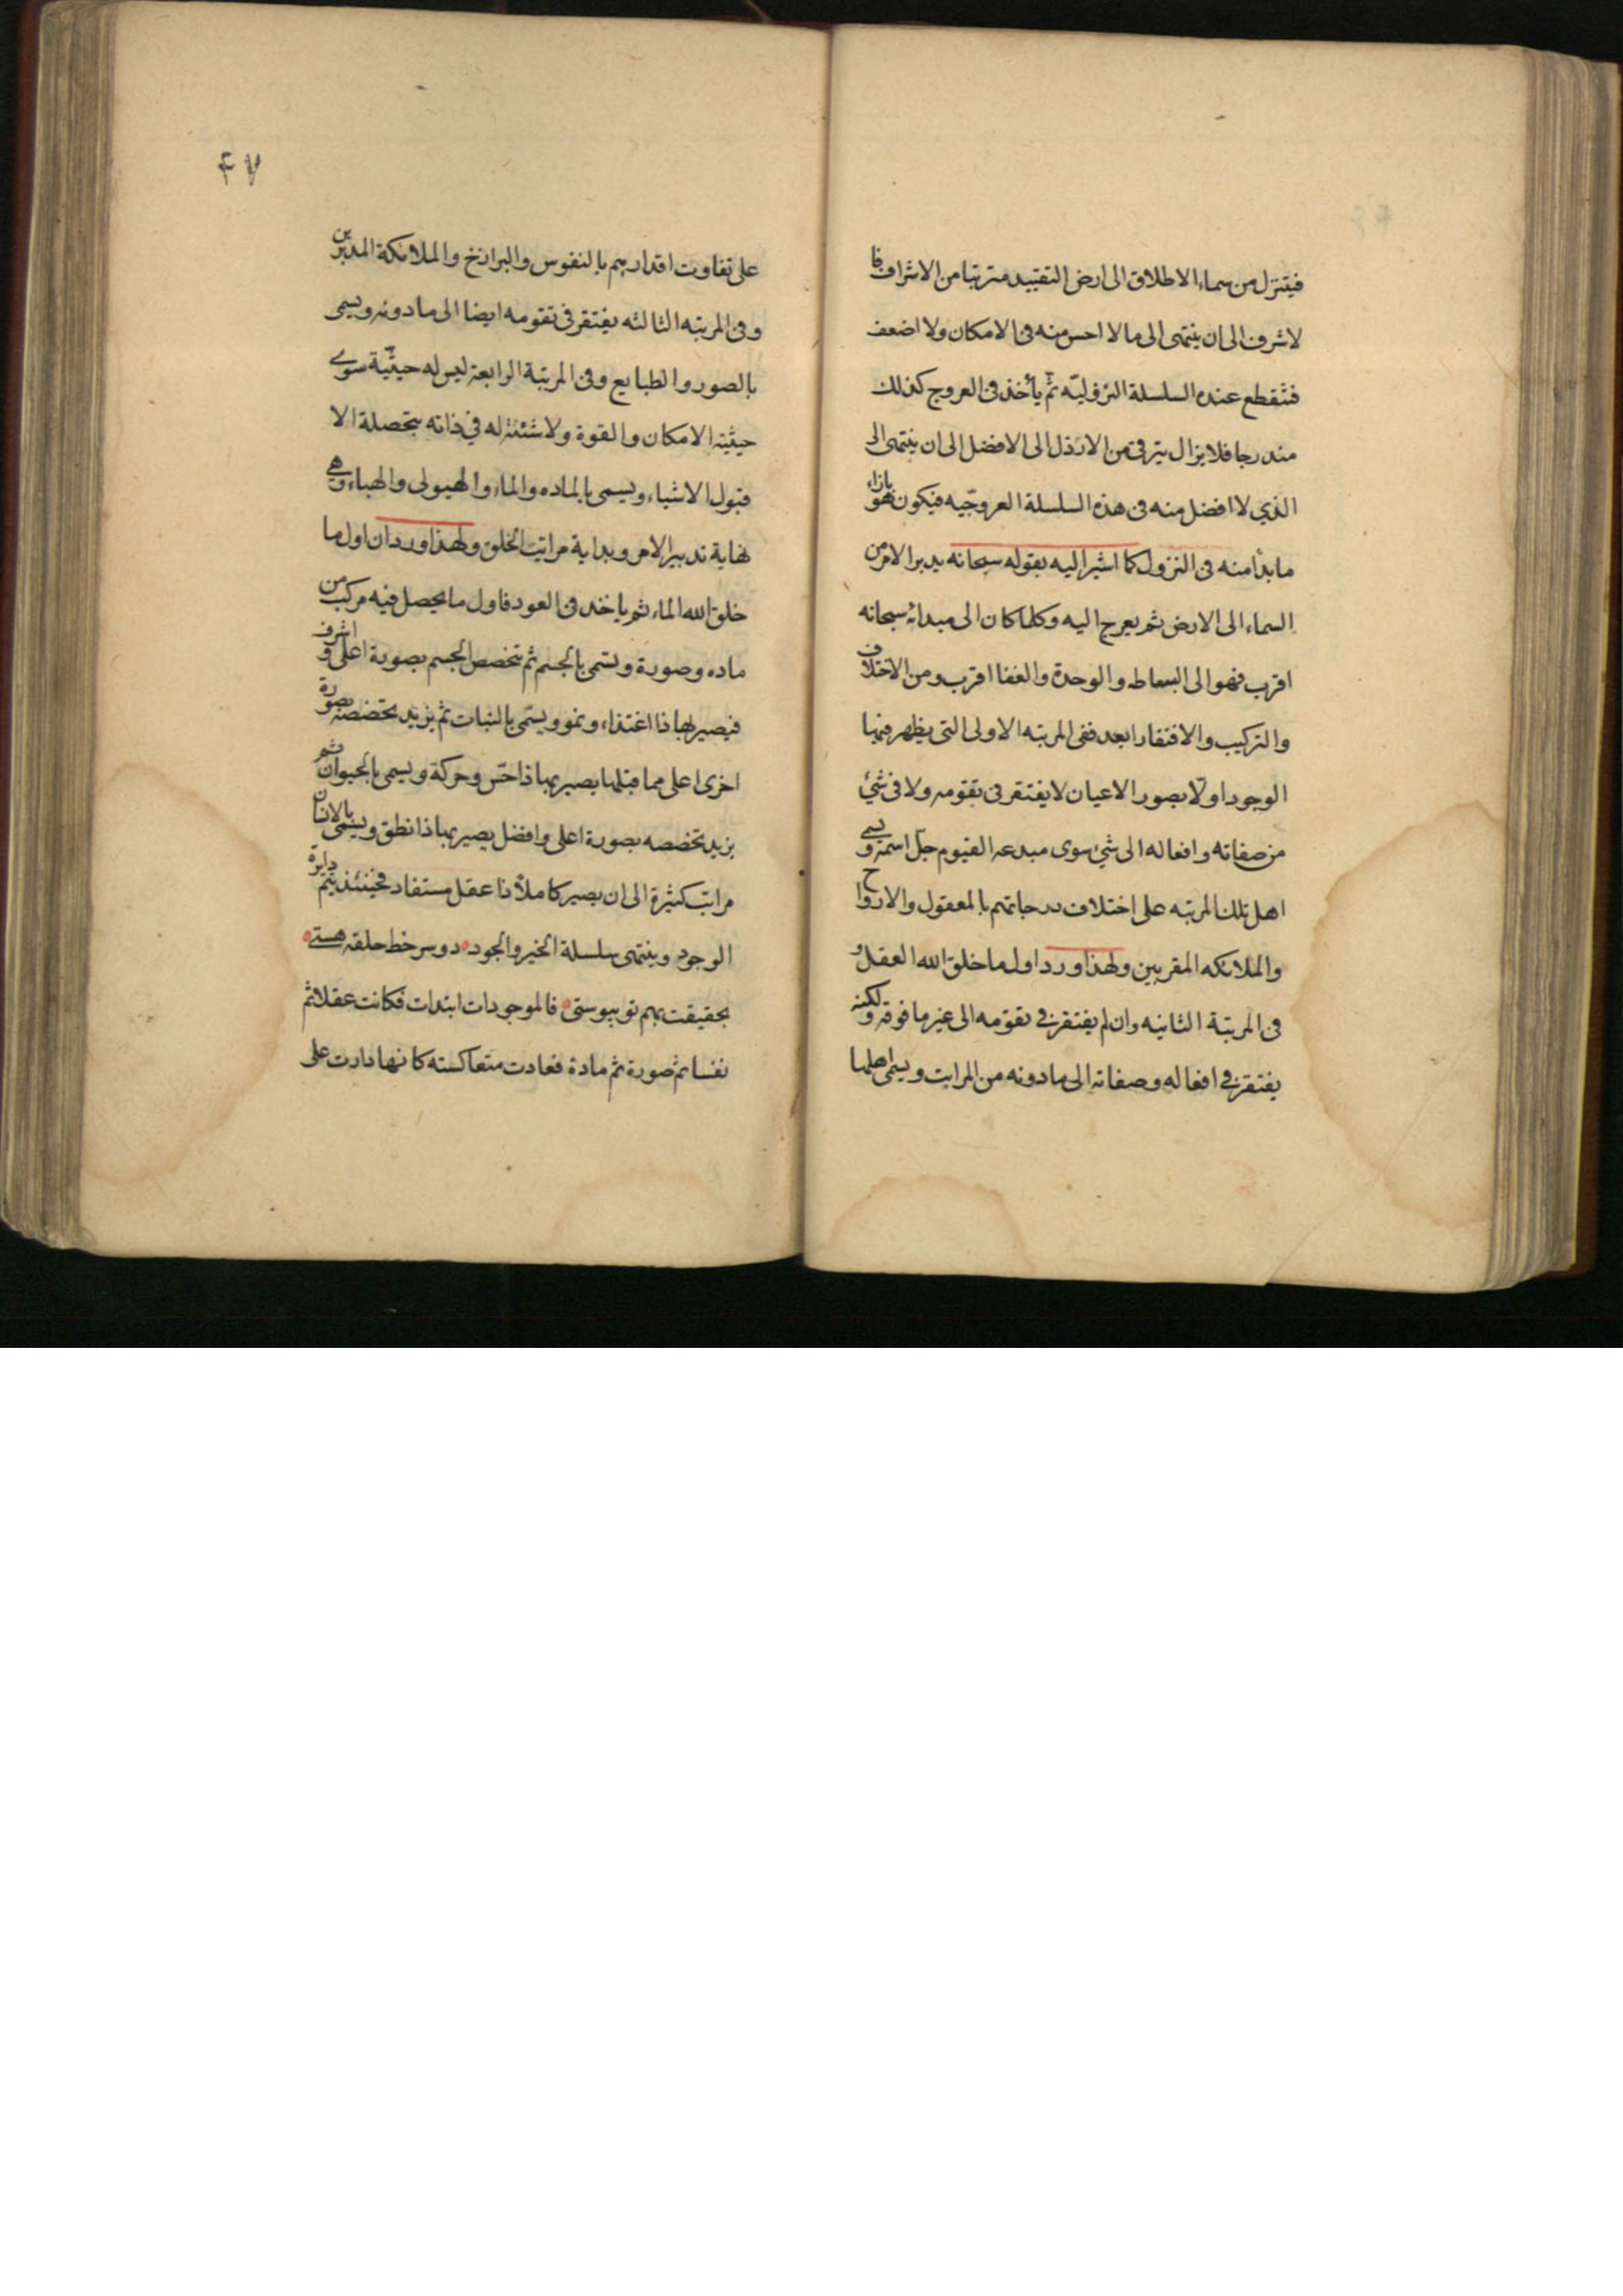 فيتنزل من سماء الاطلاق الى ارض التقييد مترتبا من الاشراف فا
لاشرف الى ان ينتهى الى ما لا اخس منه فى الامكان ولا اضعف
فتقطع عنده السلسلة النزوليّه ثمّ يأخذ فى العروج كذلك
مندرجا فلا يزال يترقى من الارذل الى الافضل الى ان ينتهى الى
الذي لا افضل منه فى هذه السلسلة العروجّيه فيكون هو بازاء
ما بدأ منه فى النزول كما اشير اليه بقوله سبحانه يدبر الامر من
السماء الى الارض ثم يعرج اليه وكلما كان الى مبدائه سبحانه
اقرب فهو الى البساطه والوحدة والغنا اقرب ومن الاختلاف
والتركيب والافتقار ابعد ففى المرتبه الاولى التى يظهر فيها
الوجود اولّا بصور الاعيان لا يفتقر فى تقومه ولا فى شئ
من صفاته وافعاله الى شئ سوى مبدعه القيوم جلّ اسمه ويسمى
اهل تلك المرتبه على اختلاف درجاتهم بالمعقول والارواح
والملائكه المقربين ولهذا ورد اول ما خلق الله العقل و
فى المرتبة الثانيه وان لم يفتقر فى تقوّمه الى غير ما فوقه ولكنه
يفتقر فى افعاله وصفاته الى ما دونه من المراتب ويسمى اهلها
۴۷
على تفاوت اقدارهم بالنفوس والبرازخ والملائكة المدبرين
وفى المرتبه الثالثه يفتقر فى تقومه ايضا الى ما دونه ويسمى
بالصور والطبايع وفى المرتبة الرابعة ليس له حيثيّة سوى
حيثية الامكان والقوة ولا شيئية له في ذاته متحصلة الا
قبول الاشياء ويسمى بالماده والماء والهيولى والهباء وهى
نهاية تدبير الامر وبداية مراتب الخلق ولهذا ورد ان اول ما
خلق الله الماء ثم ياخذ فى العود فاول ما يحصل فيه مركب من
ماده وصورة ويسمى بالجسم ثم يتخصص الجسم بصورة اعلى و اشرف
فيصير بها ذا اغتذاء ونمو ويسمى بالنبات ثم يزيد تخصصه بصورة
اخرى اعلى مما قبلها يصير بها ذا حسّ وحركة ويسمى بالحيوان ثم
يزيد تخصصه بصورة اعلى وافضل يصير بها ذا نطق ويسمى بالانسان
مراتب كثيرة الى ان يصير كاملاً ذا عقل مستفاد فحينئذ يتم دايرة
الوجود وينتهى سلسلة الخير والجود دو سر خط حلقه هستى
بحقيقت بهم تو پيوستى فالموجودات ابتدات فكانت عقلا ثم
نفسا ثم صورة ثم مادة فعادت متعاكسته كانها دارت على